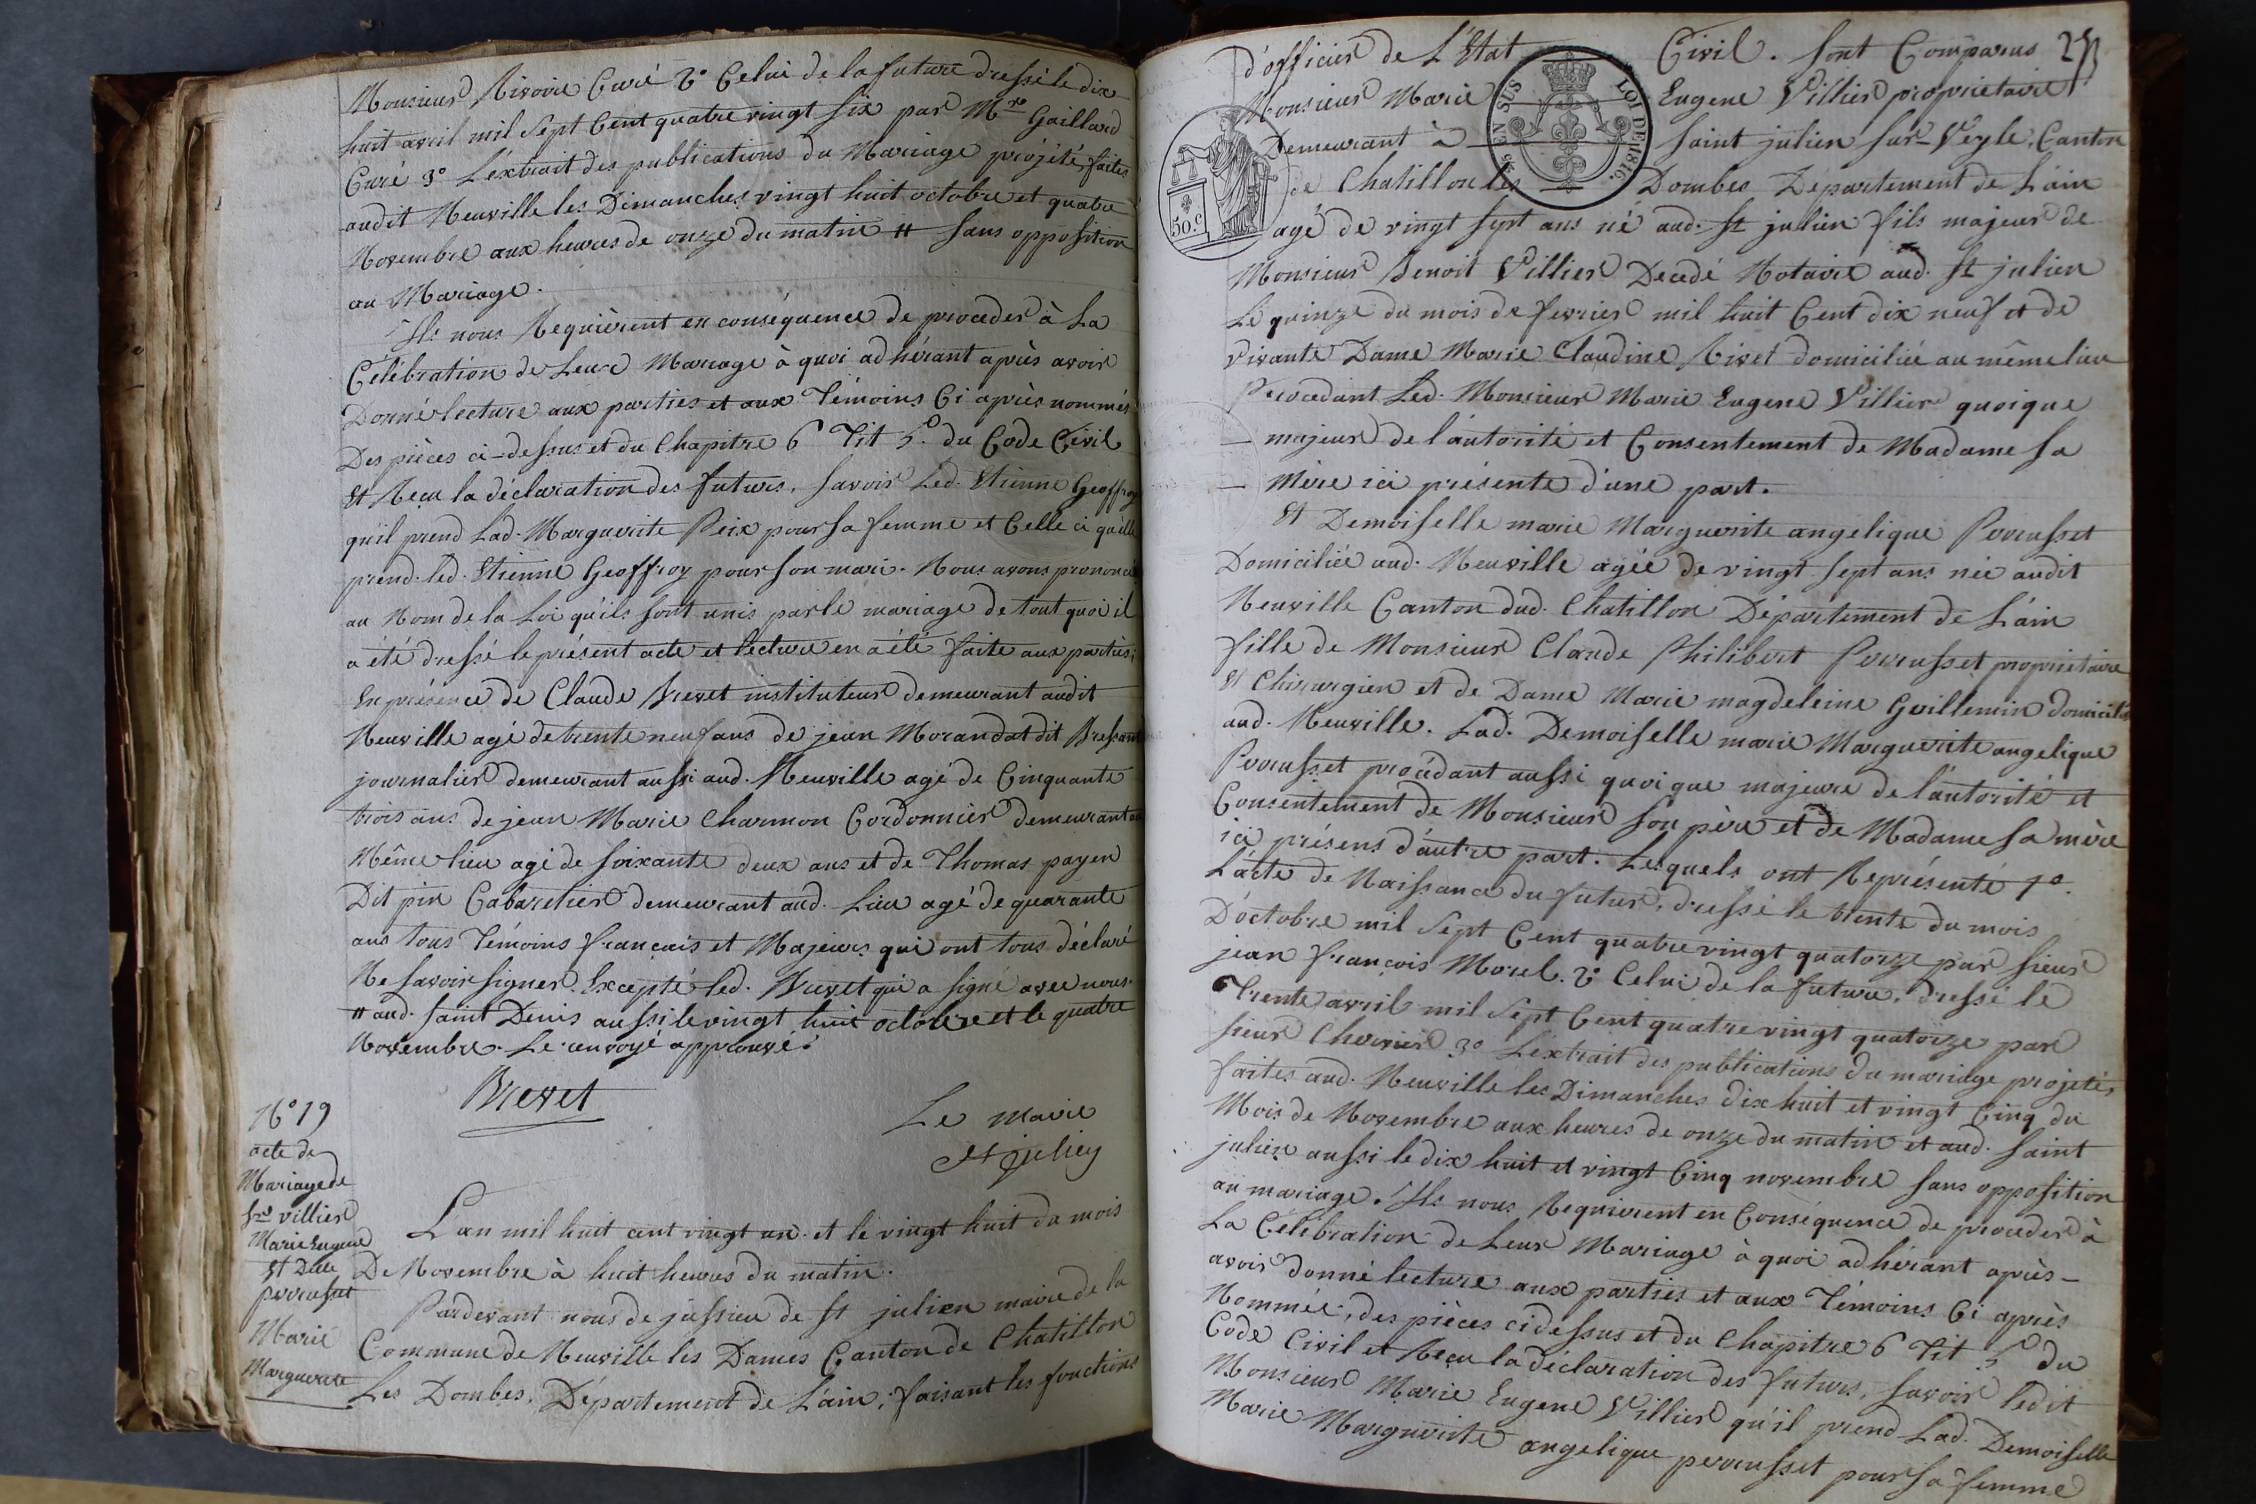 Monsieur Rivoire Curé 2° Celui de la future dressé le dix
huit avril mil Sept Cent quatre vingt six par Mre Gaillard
Curé 3° L'extrait des publications du Mariage projété, faites
audit Neuville les Dimanches vingt huit octobre et quatre
Novembre aux heures de onze du matin # sans opposition
au Mariage.
Ils nous Requièrent en conséquence de proceder à La
Célébration de Leur Mariage à quoi adhérant après avoir
Donné lecture aux parties et aux Témoins Ci après nommés
Des pièces ci-dessus et du Chapitre 6 Tit 5°. du Code Civil
Et Reçu la déclaration des futurs, Savoir Led. Etienne Geoffroy
qu'il prend Lad. Marguerite Peix pour sa femme et Celle ci qu'elle
prend led. Etienne Geoffroy pour son mari. Nous avons prononcé
au Nom de la Loi qu'ils sont unis par le mariage de tout quoi il
a été dressé le présent acte et lecture en a été faite aux parties;
En présence de Claude Brevet instituteur demeurant audit
Neuville agé de trente neuf ans de jean Morandat dit Bressant
journalier demeurant aussi aud. Neuville agé de Cinquante
trois ans de jean Marie Charmon Cordonnier demeurant au
Même lieu agé de soixante deux ans et de Thomas payen
Dit pin Cabaretier demeurant aud. Lieu agé de quarante
ans tous Témoins français et Majeurs qui ont tous déclaré
Ne savoir signer Excepté led. Brevet qui a signé avec nous.
# aud. Saint Denis aussi le vingt huit octobre et le quatre
Novembre. Le renvoyé approuvé.
Brevet
Le maire
St julien
N° 19
acte de
Mariage de
Sr villier
Marie Eugene
Et Dlle
perrusset
Marie
Marguerite
L'an mil huit cent vingt un et le vingt huit du mois
De Novembre à huit heures du matin.
Pardevant nous de jussieu de St julien maire de la
Commune de Neuville les Dames Canton de Chatillon
Les Dombes, Département de L'ain, faisant les fonctions
d'officier de L'Etat Civil. Sont Comparus
Monsieur Marie Eugene Villier propriétaire
Demeurant à Saint julien sur Veyle, Canton
de Chatillon les Dombes Département de L'ain
EN SUS
LOI DE 1816.
50.c
agé de vingt sept ans né aud. St julien fils majeur de
Monsieur Benoit Villier Decédé Notaire aud. St julien
Le quinze du mois de fevrier mil huit Cent dix neuf et de
vivante Dame Marie Claudine Rivet domiciliée au même lieu
Procedant Led. Monsieur Marie Eugene Villier quoique
majeur de l'autorité et Consentement de Madame sa
Mère ici présente d'une part.
Et Demoiselle marie Marguerite angelique Perrusset
Domiciliée aud. Neuville agée de vingt sept ans née audit
Neuville Canton dud. Chatillon Département de L'ain
fille de Monsieur Claude Philibert Perrusset propriétaire
Et Chirurgien et de Dame Marie magdeleine Guillemin domiciliés
aud. Neuville. Lad. Demoiselle marie Marguerite angelique
Perrusset procédant aussi quoique majeure de l'autorité et
Consentement de Monsieur son père et de Madame sa mère
ici présens d'autre part. Lesquels ont Représenté 1°.
L'acte de Naissance du futur, dressé le trente du mois
D'octobre mil Sept Cent quatre vingt quatorze par Sieur
jean François Morel. 2° Celui de la future, dressé le
Trente avril mil Sept Cent quatre vingt quatorze par
Sieur Chervier 3° L'extrait des publications du mariage projeté,
faites aud. Neuville les Dimanches dix huit et vingt Cinq du
Mois de Novembre aux heures de onze du matin et aud. Saint
julien aussi le dix huit et vingt Cinq novembre sans opposition
au mariage. Ils nous Requierent en Conséquence de proceder à
La Célébration de Leur Mariage à quoi adhérant après-
avoir donné lecture aux parties et aux Témoins Ci après
Nommés, des pièces cidessus et du Chapitre 6 Tit 5 du
Code Civil et Reçu la déclaration des futurs, Savoir ledit
Monsieur Marie Eugene Villier qu'il prend Lad. Demoiselle
Marie Marguerite angelique perrusset pour sa femme